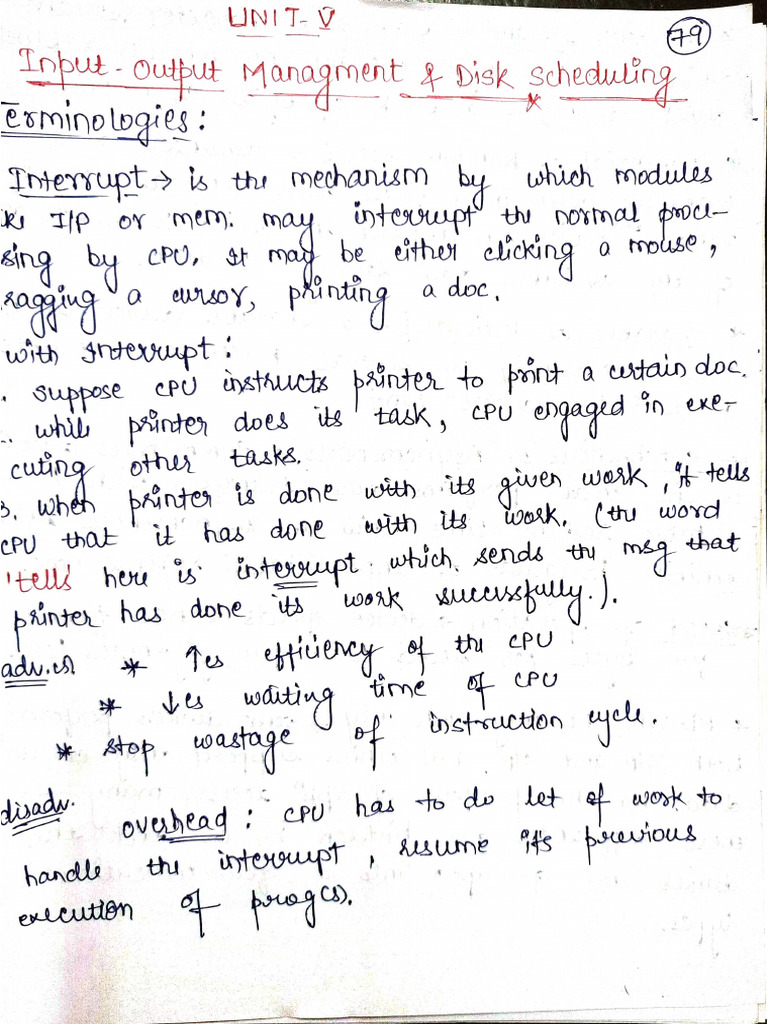 UNIT-V
79
Input-Output Managment & Disk Scheduling
Terminologies:
Interrupt → is the mechanism by which modules
like I/P or mem. may interrupt the normal proce-
ssing by CPU. It may be either clicking a mouse,
dragging a cursor, printing a doc.
with Interrupt:
. suppose CPU instructs printer to print a certain doc.
.. while printer does its task, CPU engaged in exe-
cuting other tasks.
3. when printer is done with its given work, it tells
CPU that it has done with its work. (the word
'tells' here is interrupt which sends the msg that
printer has done its work successfully.).
adv.es * ↑es efficiency of the CPU
* ↓es waiting time of CPU
* stop wastage of instruction cycle.
disadv.
overhead: CPU has to do lot of work to
handle the interrupt, resume it's previous
execution of prog(s).